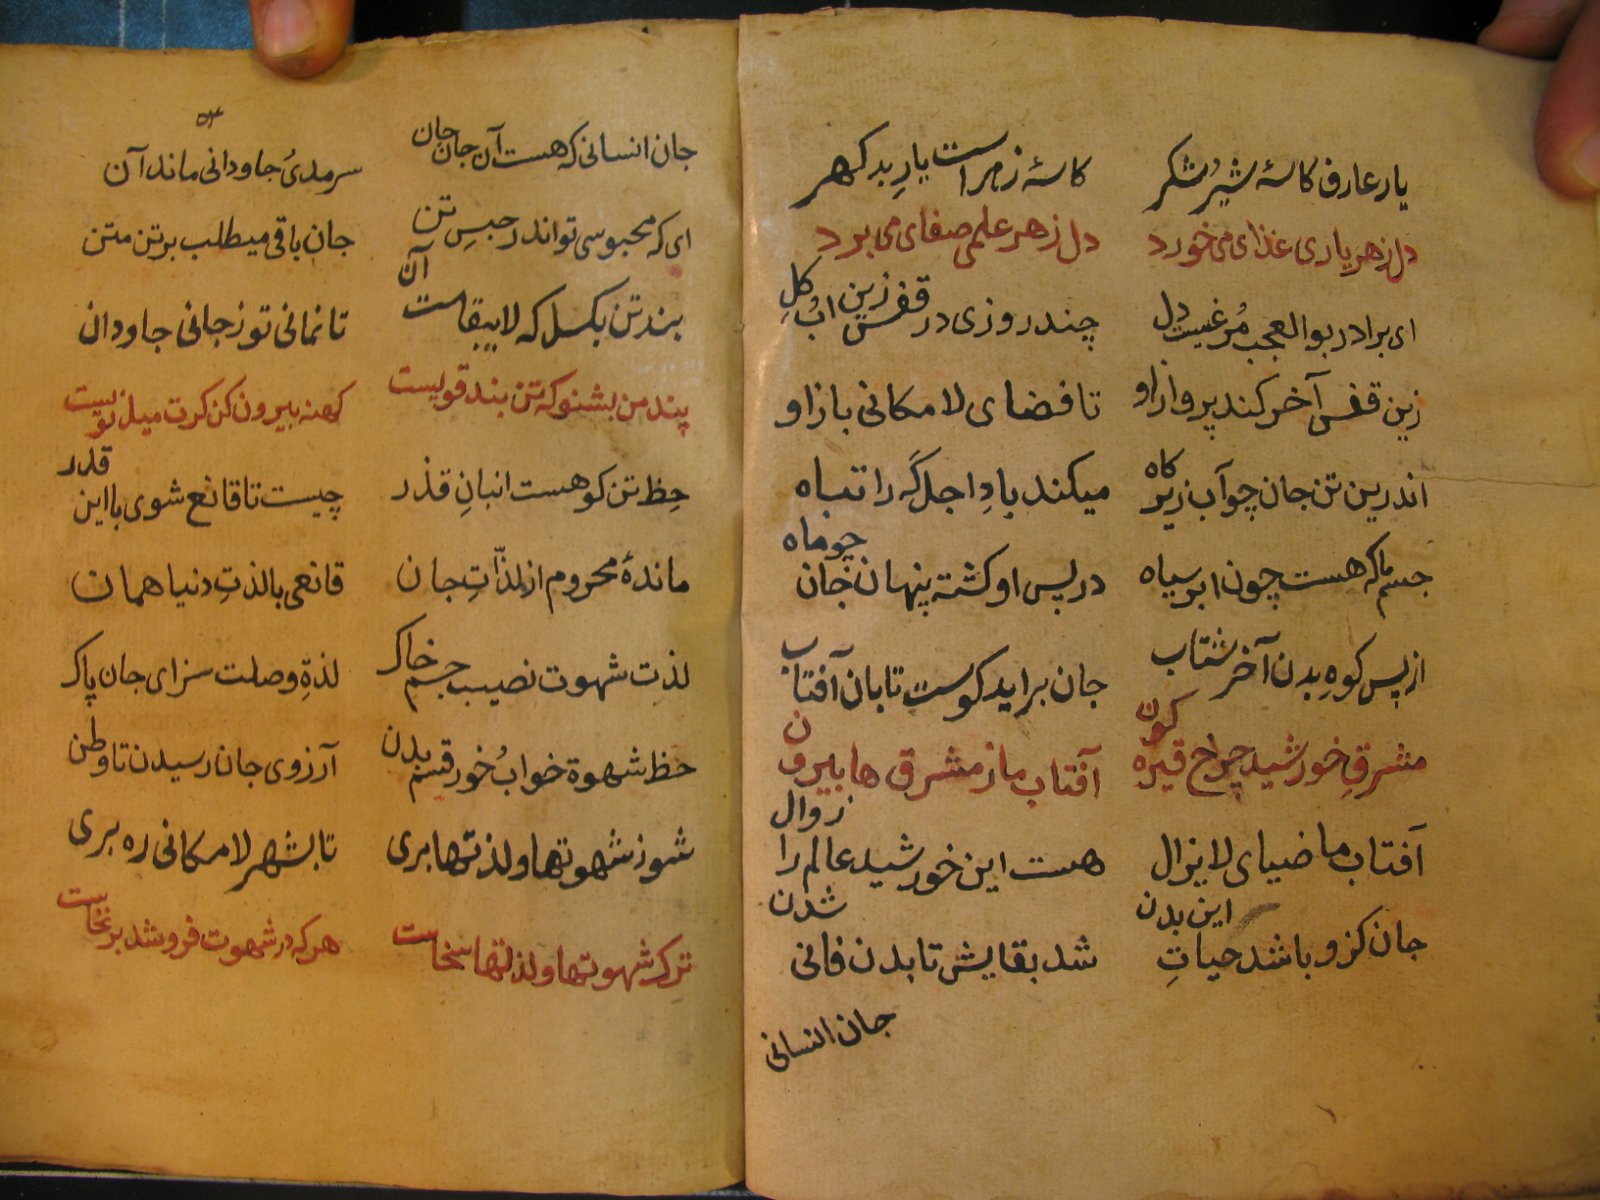 یار عارف کاسۀ شیرُ شکر کاسۀ زهر است یارِ بد کهر
دل زهر یاری غذای می‌خورد دل زهر علمی صفای می برد
ای برادر بوالعجب مُرغیست دل چند روزی در قفس زین ابُ کلِ
زین قفس آخر کند پرواز او تا فضای لامکانی باز او
اندرین تن جان چو آب زیر کاه میکند بادِ اجل که را تباه
جسم ما که هست چون ابر سیاه در پس او کشته پنهان جان چو ماه
از پس کوهِ بدن آخر شتاب جان براید کوست تابان آفتاب
مشرقِ خورشید چرخ قیره کون آفتاب ما ز مشرق ها بیرون
آفتاب ما ضیای لایزال هست این خورشید عالم را زوال
جان کزو باشد حیاتِ این بدن شد بقایش تا بدن فانی شدن
جان انسانی
۵۳
جان انسانی که هست آن جان جان سرمدیُ جاودانی ماند آن
ای که محبوسی تو اندر حبسِ تن جان باقی میطلب بر تن متن
بند تن بکسل که لایبقاست آن تا نمانی تو ز جانی جاودان
پند من بشنو که تن بند قویست کهنه بیرون کن کرت میل نویست
حِظ تن کو هست انبانِ قذر چیست تا قانع شوی با این قدر
ماندۀ محروم از لذّاتِ جان قانعی با لذتِ دنیا همان
لذت شهوت نصیب جسم خاک لذةِ وصلت سزای جان پاک
حظ شهوة خوابُ خور قسم بدن آرزوی جان رسیدن تا وطن
شو ز شهوتها و لذتها بری تا بشهر لامکانی ره بری
ترکِ شهوتها و لذتها سخاست هر که در شهوت فرو شد بر نخاست